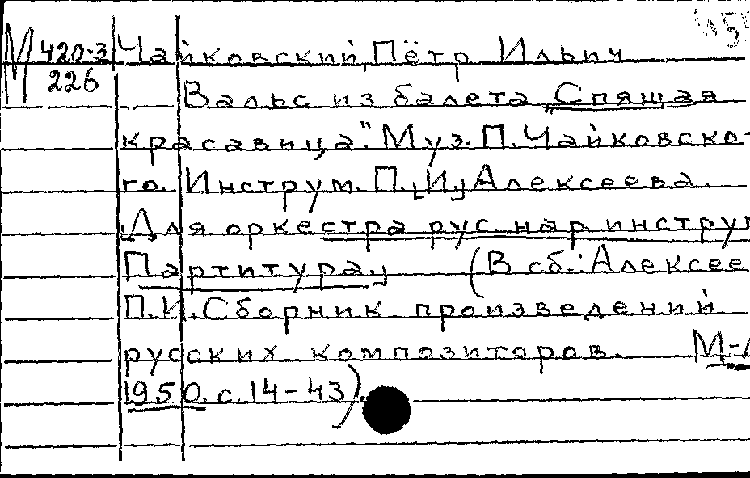 М 420-3 Чайковский, Пётр Ильич
226
Вальс из балета „Спящая
красавица". Муз. П. Чайковско-
го. Инструм. П. [И.] Алексеева.
[Для оркестра рус нар инструм
Партитура] (В сб.: Алексее
П.И. Сборник произведений
русских композиторов. М-Л
1950. с. 14-43).